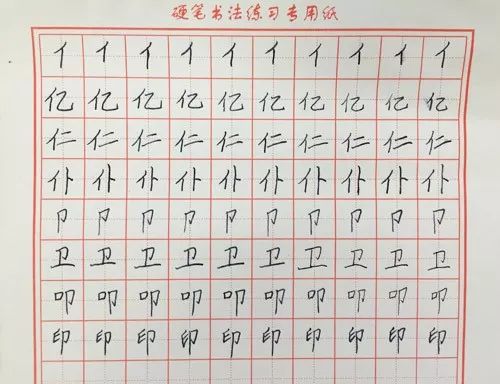 硬笔书法练习专用纸
亻亻亻亻亻亻亻亻亻亻
亿亿亿亿亿亿亿亿亿亿
仁仁仁仁仁仁仁仁仁仁
仆仆仆仆仆仆仆仆仆仆
卩卩卩卩卩卩卩卩卩卩
卫卫卫卫卫卫卫卫卫卫
叩叩叩叩叩叩叩叩叩叩
印印印印印印印印印印